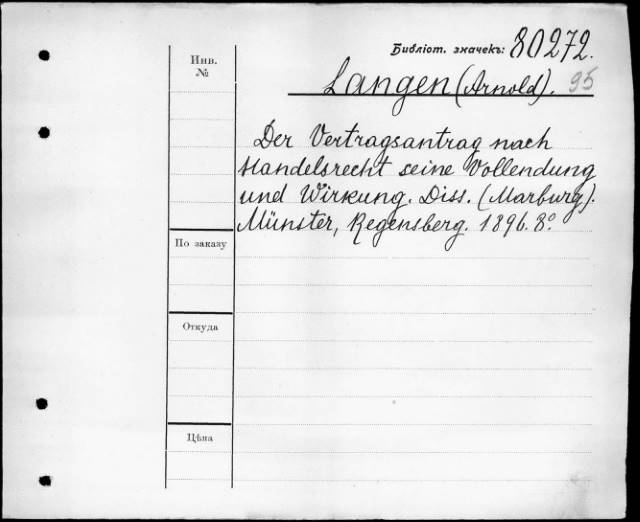 Библіот. значекъ: 80272.
Инв.
№
Langen (Arnold). 95
Der Vertragsantrag nach
Handelsrecht seine Vollendung
und Wirkung. Diss. (Marburg).
Münster, Regensberg. 1896. 8°.
По заказу
Откуда
Цѣна